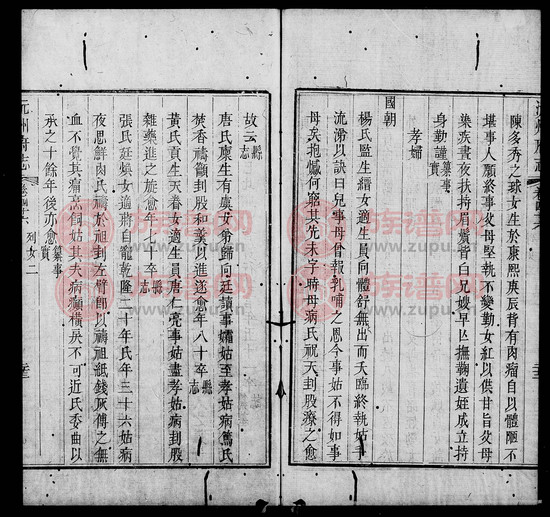 陳多秀之球女生於康熙庚辰背有肉瘤自以體軀不
堪事人願終事父母堅執不變勤女紅以供甘旨父母
染疾晝夜扶持眉鬢皆白兄嫂早亾撫鞠遺姪成立持
身勤謹纂事實
孝婦
國朝
楊氏監生縉女適生員向體舒無出而夭臨終執姑手
流涕以訣曰兒事母曾報乳哺之恩今事姑不得如事
母矣抱憾何窮其先未字時母病氏祝天刲股療之愈
故云縣志
唐氏廩生有虞女弟歸向廷讀事孀姑至孝姑病篤氏
焚香禱籲刲股和羹以進遂愈年八十卒縣志
黃氏貢生天眷女適生員唐仁亮事姑盡孝姑病刲股
雜藥進之旋愈年七十卒縣志
張氏廷煥女適蔣自龍乾隆二十年氏年三十六姑病
夜思鮮肉氏禱於祖刲左臂卽以禱祖紙錢灰傅之無
血不覺其痛烹飼姑其夫病癱橫戾不可近氏委曲以
承之十餘年後亦愈纂事實
沅州府志
卷
列女二
族谱网
www.zupu.cn